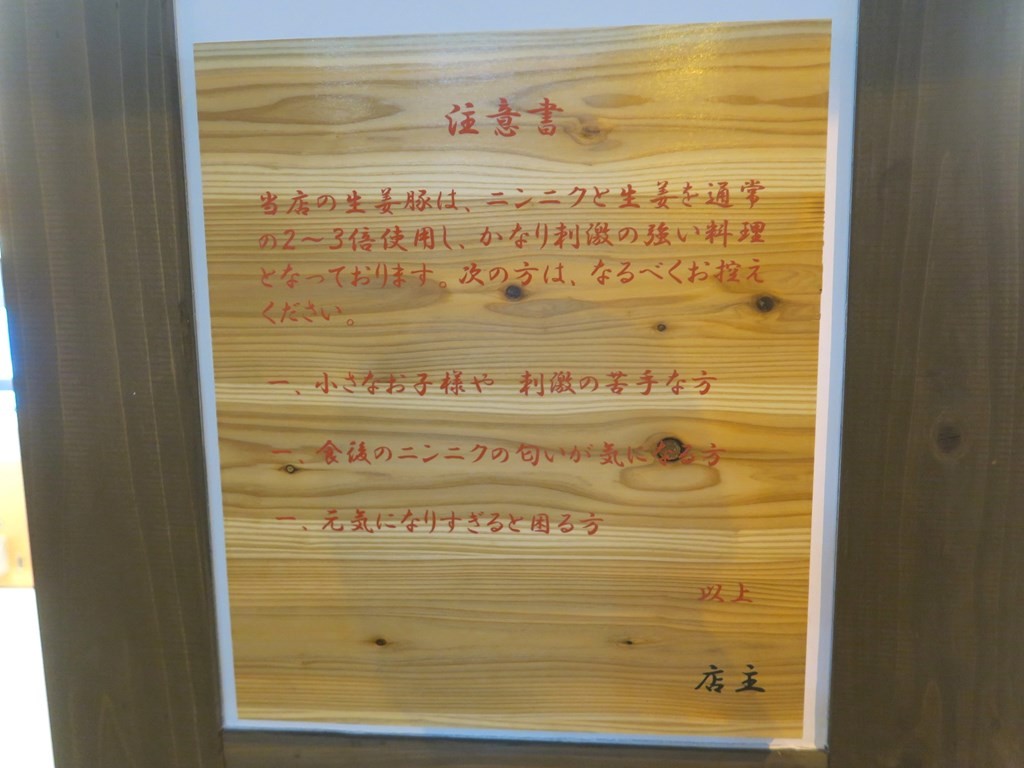 注意書
当店の生姜豚は、ニンニクと生姜を通常
の2～3倍使用し、かなり刺激の強い料理
となっております。次の方は、なるべくお控え
ください。
一、小さなお子様や 刺激の苦手な方
一、食後のニンニクの匂いが気になる方
一、元気になりすぎると困る方
以上
店主